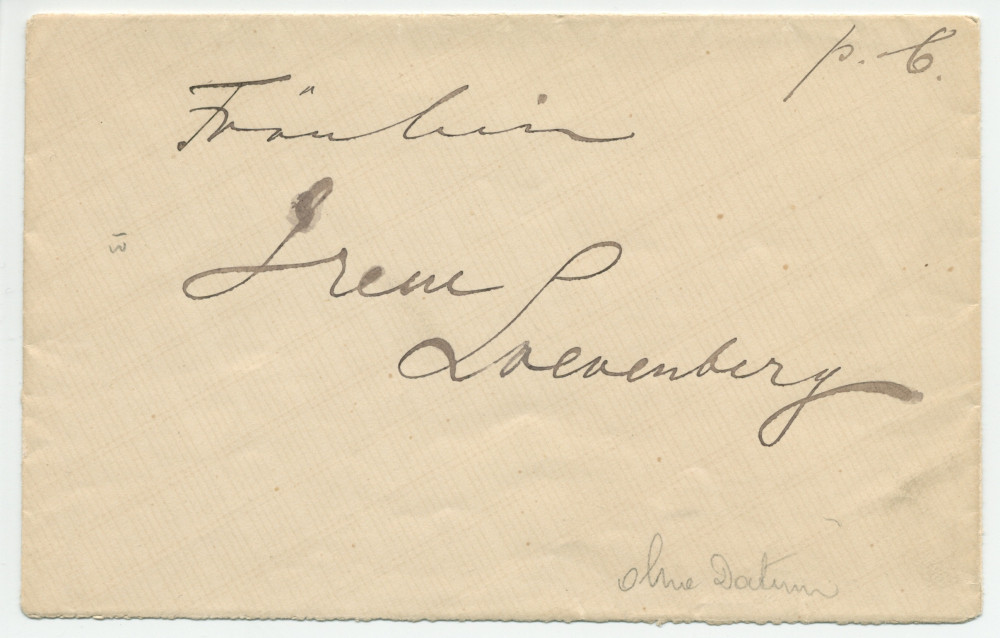 p. C.
Fräulein
Irene
Loevenberg
ohne Datum